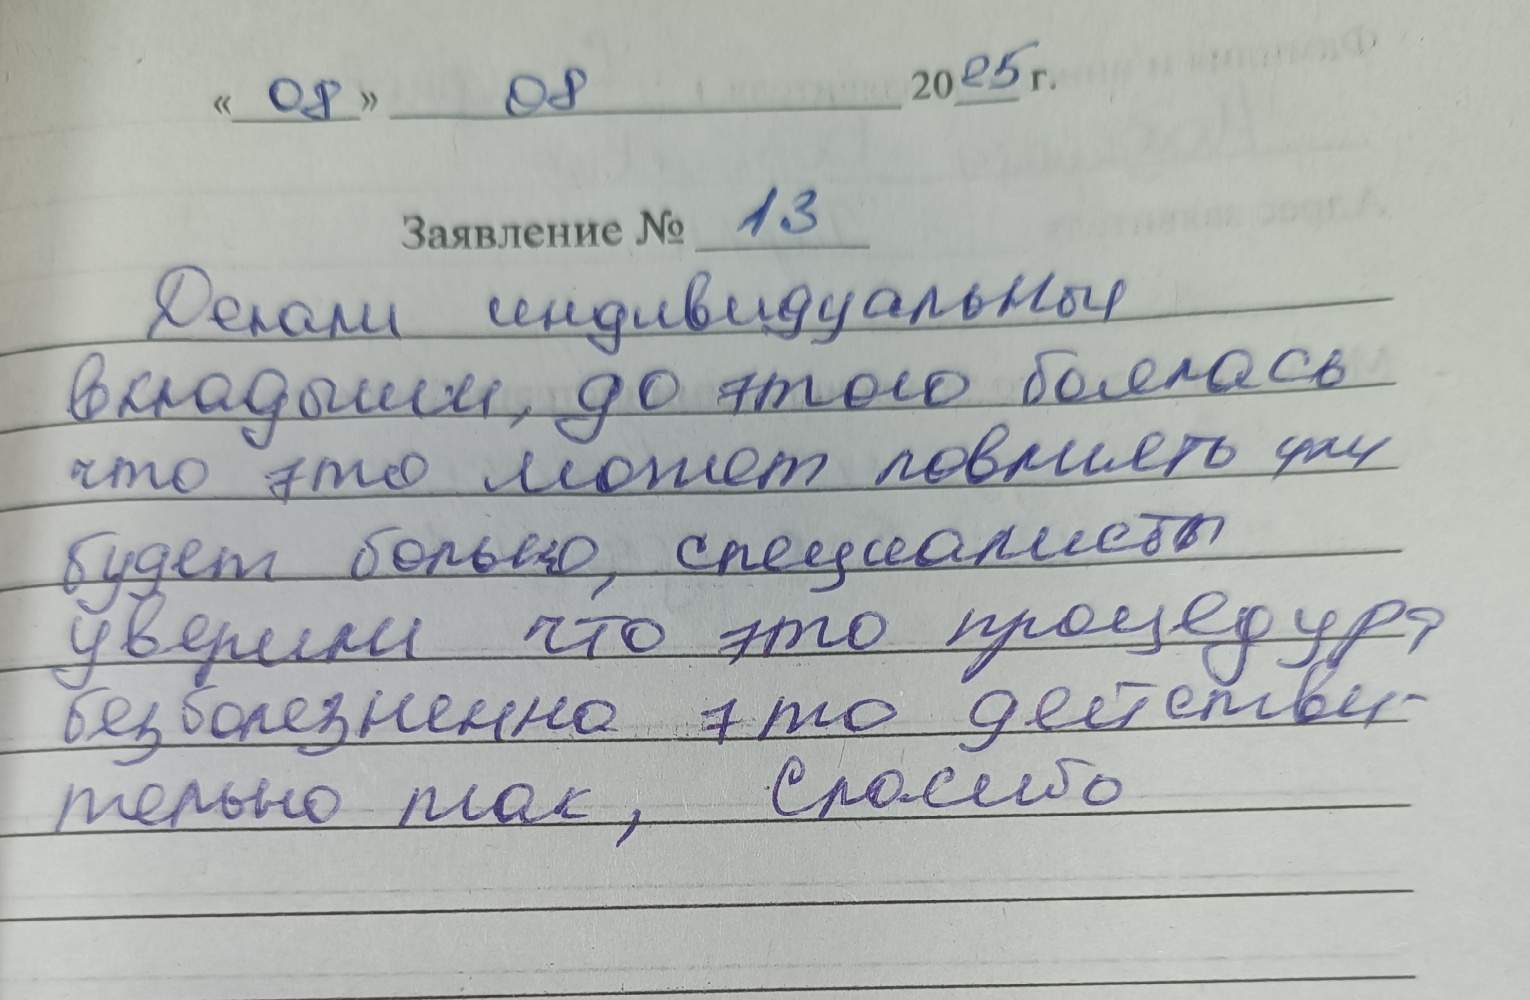 « 08 » 08 2025 г.
Заявление № 13
Делали индивидуальный
вкладыши, до этого боялась
что это может повлиять или
будет больно, специалисты
уверили что это процедура
безболезненна это действи-
тельно так, Спасибо